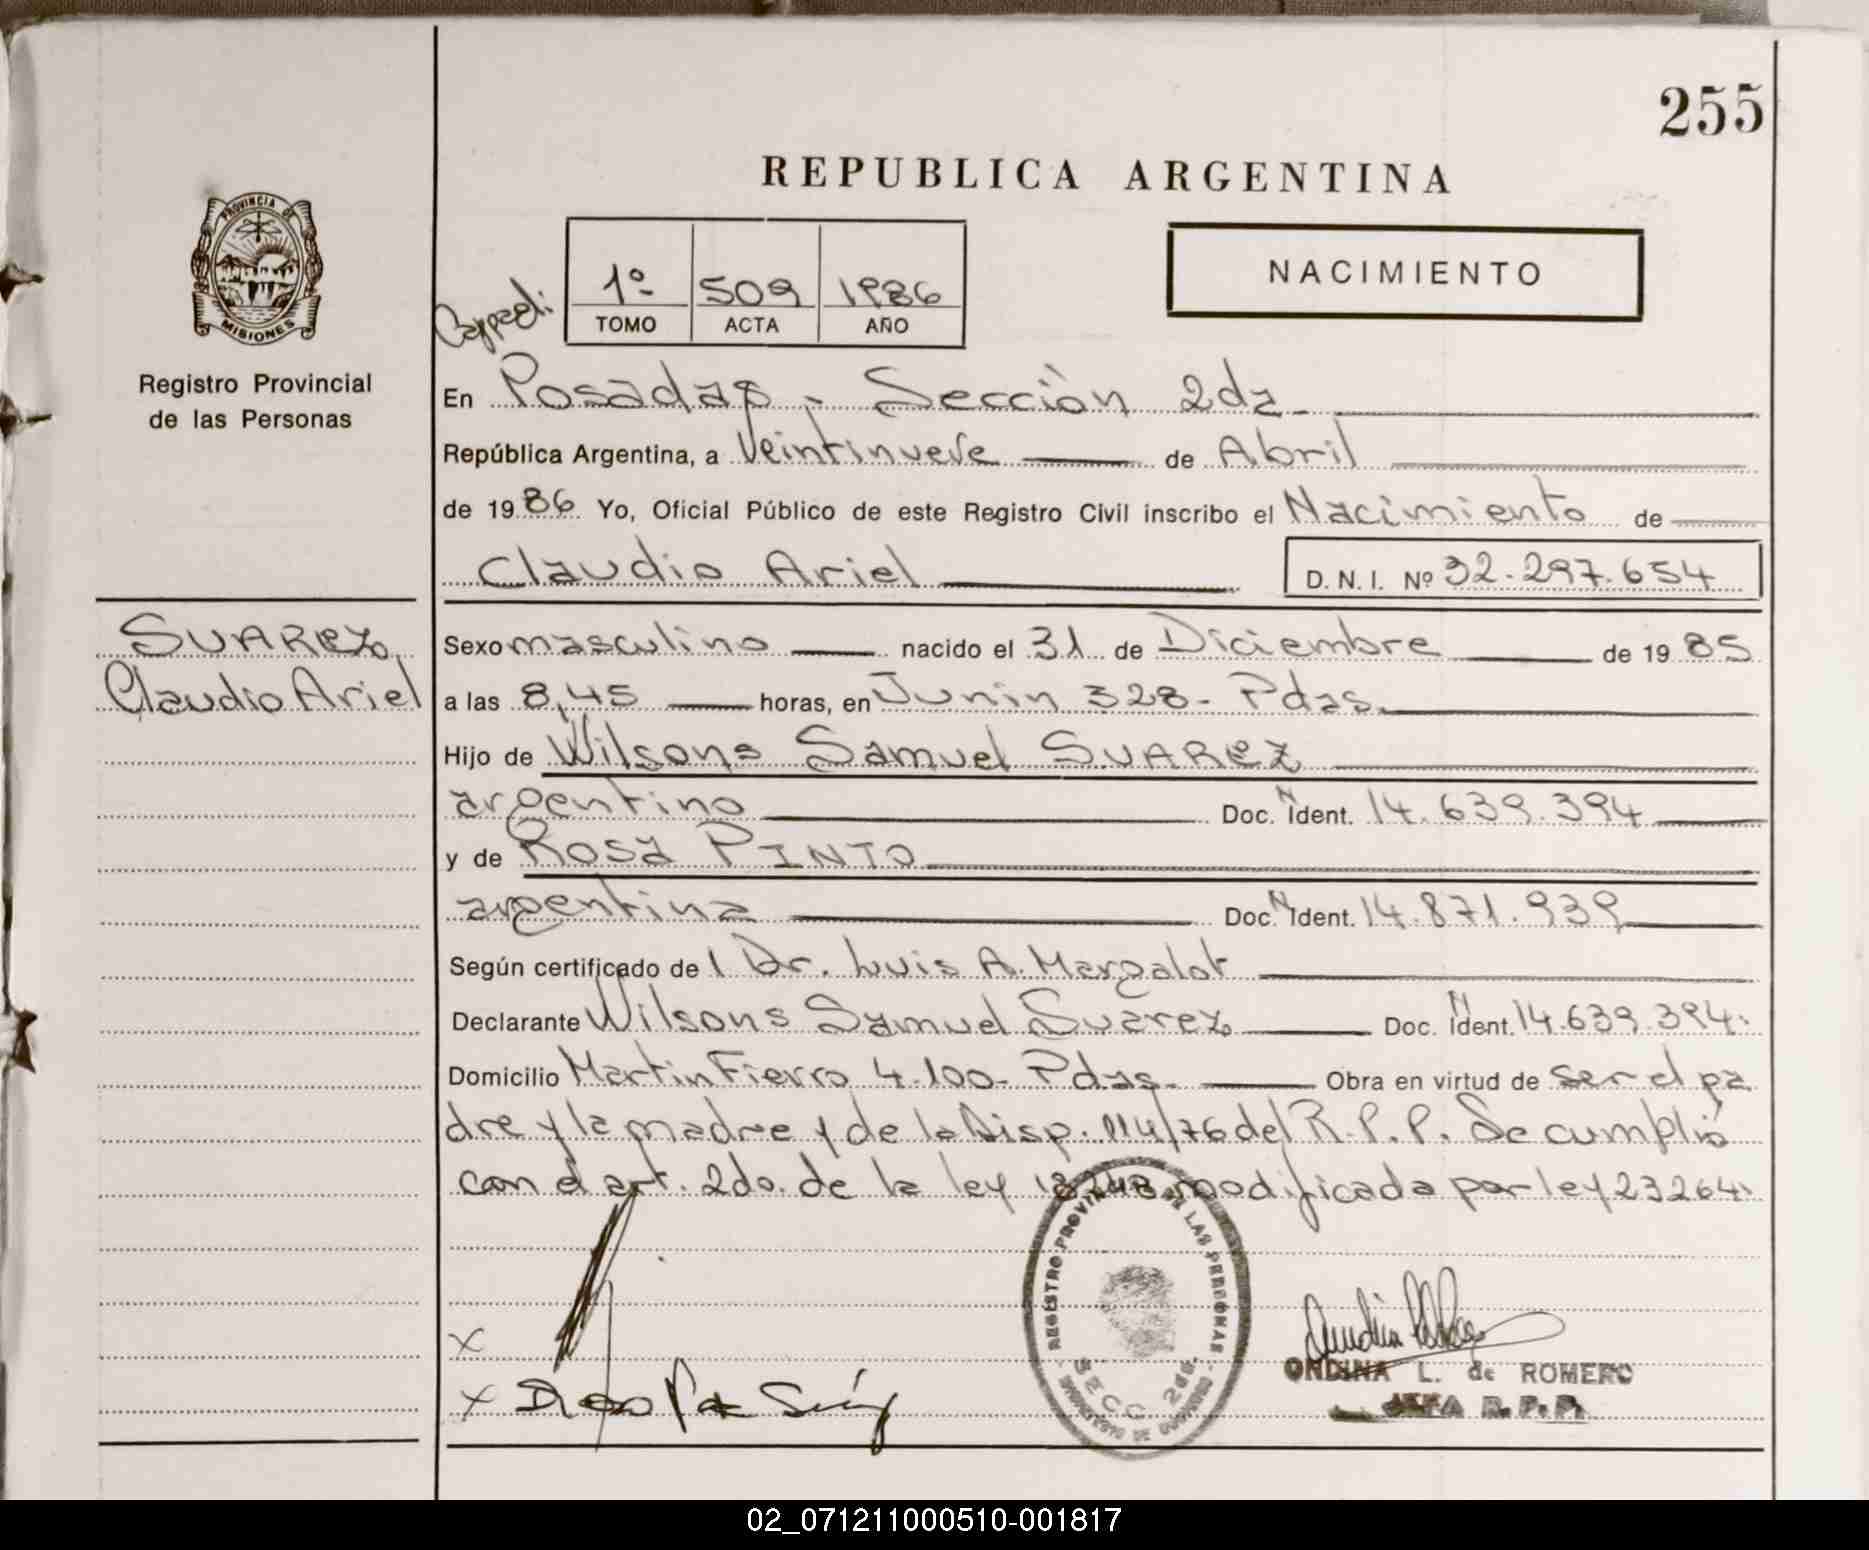 255
REPUBLICA ARGENTINA
PROVINCIA DE MISIONES
Registro Provincial
de las Personas
1º 509 1986
TOMO ACTA AÑO
NACIMIENTO
En Posadas - Sección 2da
República Argentina, a Veintinueve de Abril
de 1986 Yo, Oficial Público de este Registro Civil inscribo el Nacimiento de
Claudio Ariel D.N.I. Nº 32.297.654
SUAREZ
Claudio Ariel
Sexo masculino nacido el 31 de Diciembre de 1985
a las 8,45 horas, en Junin 328 - Pdas.
Hijo de Wilsons Samuel SUAREZ
argentino Doc. N Ident. 14.639.394
y de Rosa PINTO
argentina Doc. N Ident. 14.871.939
Según certificado de l Dr. Luis A. Margalot
Declarante Wilsons Samuel Suarez Doc. N Ident. 14.639.394.
Domicilio Martin Fierro 4.100 - Pdas. Obra en virtud de ser el pa
dre y la madre y de la Disp. 114/76 del R.P.P. Se cumplió
con el art. 2do. de la ley 18248 modificada por ley 23264.
REGISTRO PROVINCIAL DE LAS PERSONAS
SECC. 2da
x
x
ONDINA L. de ROMERO
JEFA R.P.P.
02_071211000510-001817